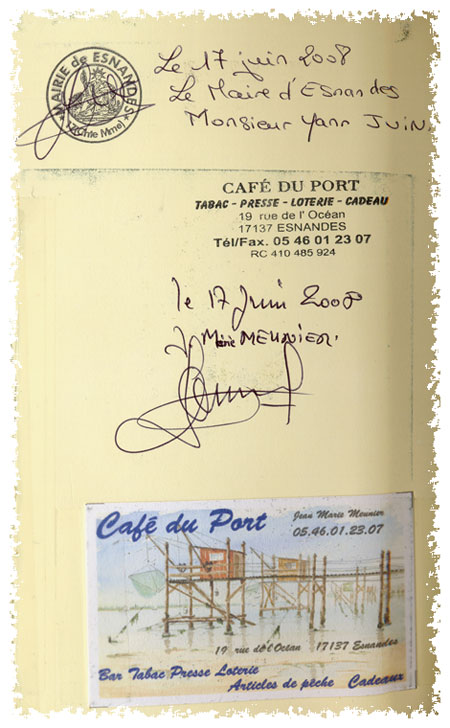 MAIRIE de ESNANDES
17 (Chte Mme)
Le 17 juin 2008
Le Maire d'Esnandes
Monsieur Yann JUIN.
CAFÉ DU PORT
TABAC - PRESSE - LOTERIE - CADEAU
19 rue de l' Océan
17137 ESNANDES
Tél/Fax. 05 46 01 23 07
RC 410 485 924
le 17 Juin 2008
J. Marie MEUNIER.
Café du Port
Jean Marie Meunier
05.46.01.23.07
19 rue de l'Océan 17137 Esnandes
Bar Tabac Presse Loterie
Articles de pêche Cadeaux